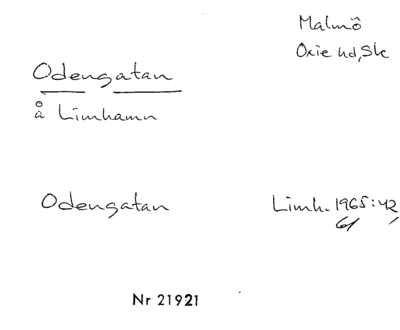 Malmö
Oxie hd, Sk
Odengatan
å Limhamn
Odengatan Limh. 1965:42
61
Nr 21921